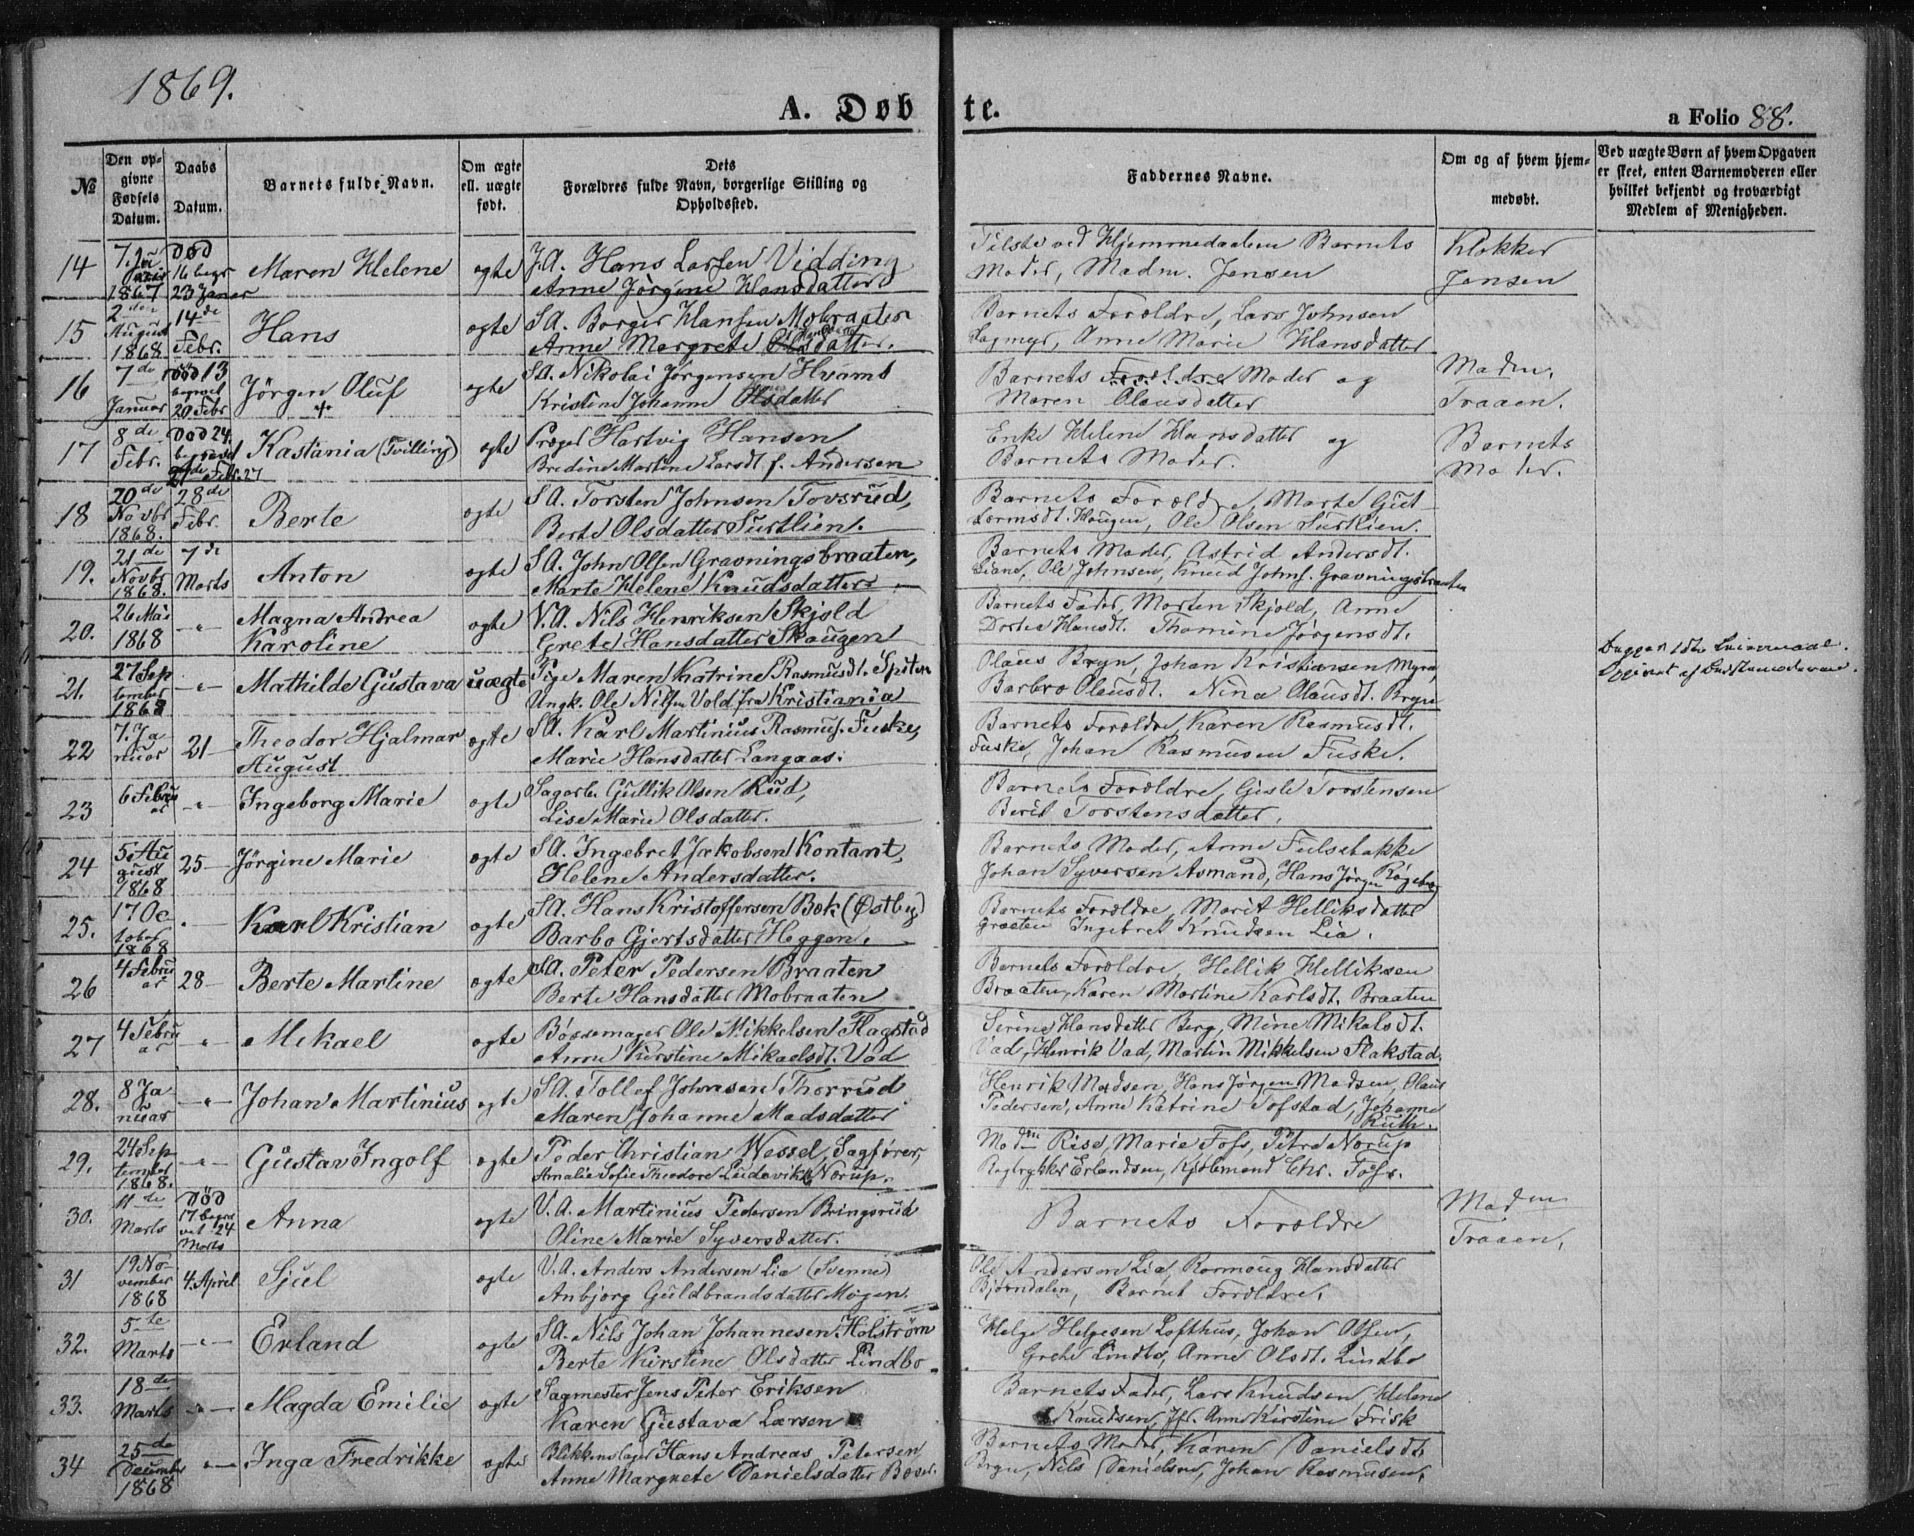 1869.
A. Døbte.
a Folio 88.
№
Den opgivne Fødsels Datum.
Daabs Datum.
Barnets fulde Navn.
Om ægte ell. uægte født.
Dets Forældres fulde Navn, borgerlige Stilling og Opholdssted.
Faddernes Navne.
Om og af hvem hjemmedøbt.
Ved uægte Børn af hvem Opgaven er skeet, enten Barnemoderen eller hvilket bekjendt og troværdigt Medlem af Menigheden.
14 7. Januar 1867 Død 16 begr 23 Januar Maren Helene ægte J.A. Hans Larsen Vidding
Anne Jørgine Hansdatter
Tilste ved Hjemmedaaben Barnets
Moder, Madm. Jensen
Klokker
Jensen
15 2den August 1868 14de Febr. Hans ægte SA. Borger Hansen Mobraaten
Anne Margrete datter.
Barnets Forældre, Lars Johnsen
Lagmyr, Anne Marie Hansdatter
16 7de Januar død 13 begravet 20 Febr Jörgen Oluf ægte SA. Nikolai Jörgensen Hvams
Kristine Johanne Olsdatter
Barnets Forældre Moder og
Maren Olausdatter
Madm.
Traaen.
17 8de Febr. Død 24. begravet Febr. 27 Kastania (Tvilling) ægte Præger Hartvig Hansen
Bredine Martine Larsdt f. Andersen
Enke Helene Hansdatter og
Barnets Moder.
Barnets
Moder.
18 20de Novbr 1868. 28de Febr. Berte ægte SA. Torsten Johnsen Tovsrud,
Berte Olsdatter Surtlien.
Barnets Forældre, Marte Gut-
tormsdt. Haugen, Ole Olsen Surtlien.
19. 21de Novbr 1868. 7de Marts Anton ægte SA. John Olsen Gravningsbraaten,
Marte Helene Knudsdatter
Barnets Moder, Astrid Andersdt.
Liane, Ole Johnsen, Knud Johns. Gravningsbraaten
20. 26 Mai 1868 -"- Magna Andrea
Karoline ægte V.A. Nils Henriksen Skjold
Grete Hansdatter Skaugen
Barnets Fader, Morten Skjold, Anne
Dortea Hansdt. Thomine Jørgensdt.
21. 27 September 1868 -"- Mathilde Gustava uægte Pige Maren Katrine Rasmusdt. Spiten
Ungk. Ole Nilsen Vold fra Kristiania
Olaus Bryn, Johan Kristiansen Myra,
Barbro Olausdt. Nina Olausdt. Bryn
Begges 1ste Leiermaal.
Opgivet af
22 7. Januar 21- Theodor Hjalmar
August ægte SA. Karl Martinius Rasmus. Fuske,
Marie Hansdatter Langaas.
Barnets Forældre, Karen Rasmusdt.
Fuske, Johan Rasmusen Fuske.
23 6 Februar -"- Ingeborg Marie ægte Sagarb. Gullik Olsen Rud,
Lise Marie Olsdatter.
Barnets Forældre, Gisle Torstensen
Berit Torstensdatter.
24 5 August 1868 25- Jørgine Marie ægte SA. Ingebret Jakobsen Kontant,
Helene Andersdatter.
Barnets Moder, Anne Fulsebakke
Johan Syversen Asmand, Hans Jørgen
25. 17 October 1868 -"- Karl Kristian ægte SA. Hans Kristoffersen Bok (Østby)
Barbo Gjertsdatter Heggen.
Barnets Forældre, Marit Helliksdatter
graaten Ingebret Knudsen Lia.
26 4 Februar 28- Berte Martine ægte SA. Peter Pedersen Braaten
Berte Hansdatter Mobraaten
Barnets Forældre, Hellik Helliksen
Braaten, Karen Martine Karlsdt. Braaten
27 4 Februar -"- Mikael ægte Bøssemager Ole Mikkelsen Flagstad
Anne Kirstine Mikaelsdt. Vad
Serine Hansdatter Berg, Mine Mikalsdt.
Vad, Henrik Vad, Martin Mikkelsen Flakstad.
28. 8 Januar -"- Johan Martinius ægte SA. Tollef Johnsen Thorrud
Maren Johanne Madsdatter
Henrik Madsen, Hans Jørgen Madsen, Olaus
Pedersen, Anne Katrine Tofstad, Johanne
Ruth.
29. 24 September 1868. -"- Gustav Ingolf ægte Peder Christian Wessel, Sagfører,
Amalie Sofie Theodore Ludovikke Norup.
Madm Rise, Marie Foss, Petre Norup
Bogtrykker Erlandsen, Kjøbmand Chr. Foss.
30. 11te Marts Død 17 begrvet 24 Marts Anna ægte V.A. Martinius Pedersen Bringsrud
Oline Marie Syversdatter.
Barnets Forældre
Madm
Traaen,
31 19 November 1868 4. April Sjul ægte V.A. Anders Andersen Lia (Svenne)
Anbjorg Guldbrandsdatter Mogen.
Ole Andersen Lia, Rannoug Hansdatter
Bjørndalen, Barnet Forældre.
32. 5te Marts -"- Erland ægte SA. Nils Johan Johannesen Holstrøm
Berte Kirstine Olsdatter Lindbo
Helge Helgesen Lofthus, Johan Olsen,
Grethe Lindbo, Anne Olsdt. Lindbo
33. 18de Marts -"- Magda Emilie ægte Sagmester Jens Peter Eriksen
Karen Gustava Larsen
Barnets Fader, Lars Knudsen Helene
Knudsen, Jfr. Anne Kirstine Frisk
34 25de December 1868 -"- Inga Fredrikke ægte Blikkenslager Hans Andreas Petersen
Anne Margrete Danielsdatter Bøse.
Barnets Moder, Karen Danielsdt.
Bryn, Nils Danielsen, Johan Rasmusen.